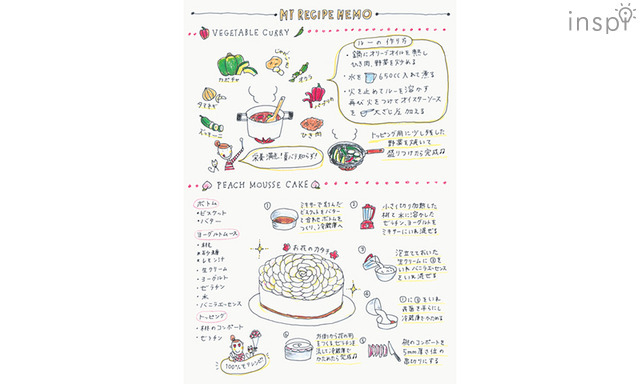 inspi
MY RECIPE MEMO
VEGETABLE CURRY
ルーの作り方
・鍋にオリーブオイルを熱し
ひき肉、野菜を炒める
・水を 650cc入れて煮る
・火を止めてルーを溶かす
再び火をつけてオイスターソース
を 大さじ 加える
カボチャ
じゃがいも
オクラ
タマネギ
パプリカ
ズッキーニ
ひき肉
栄養満点!夏バテ知らず!
トッピング用に少し残した
野菜を焼いて
盛りつけたら完成♫
PEACH MOUSSE CAKE
ボトム
・ビスケット
・バター
ヨーグルトムース
・桃
・お砂糖
・レモン汁
・生クリーム
・ヨーグルト
・ゼラチン
・水
・バニラエッセンス
トッピング
・桃のコンポート
・ゼラチン
お花のカタチ
①
ミキサーで刻んだ
ビスケットとバター
で合わせボトムを
つくり、冷蔵庫へ
②
小さく切り加熱した
桃と水に溶かした
ゼラチン、ヨーグルトを
ミキサーに入れ混ぜる
③
泡立てておいた
生クリームに②を
入れバニラエッセンス
を入れ混ぜる
④
①に③を入れ
表面を平らにし
冷蔵庫でかためる
⑤
桃のコンポートを
5mm厚さ位の
薄切りにする
⑥
外側から花の形
をつくる、ゼラチンを
流して冷蔵庫で
かためたら完成♫